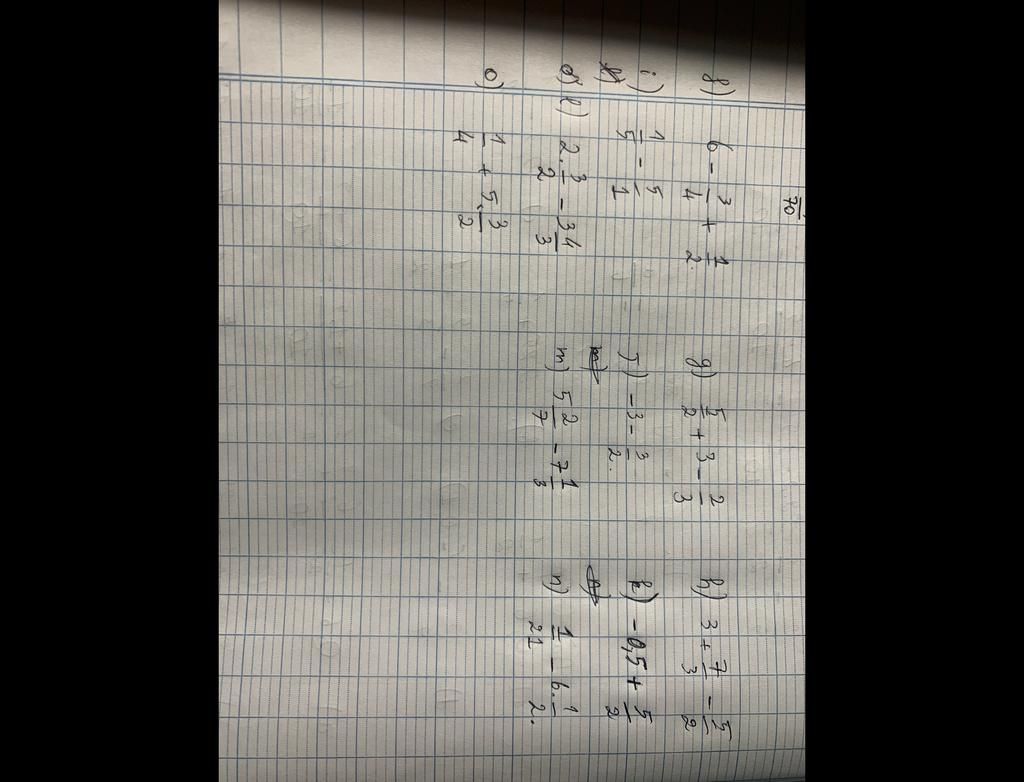 70
f) 6 - 3/4 + 1/2. g) 5/2 + 3 - 2/3 h) 3 + 7/3 - 5/2
i) 1/5 - 5/1 J) -3 - 3/2. k) -0,5 + 5/2
l) 2.3/2 - 3 4/3 m) 5 2/7 - 7 1/3 n) 1/21 - 6.1/2.
o) 1/4 + 5.3/2